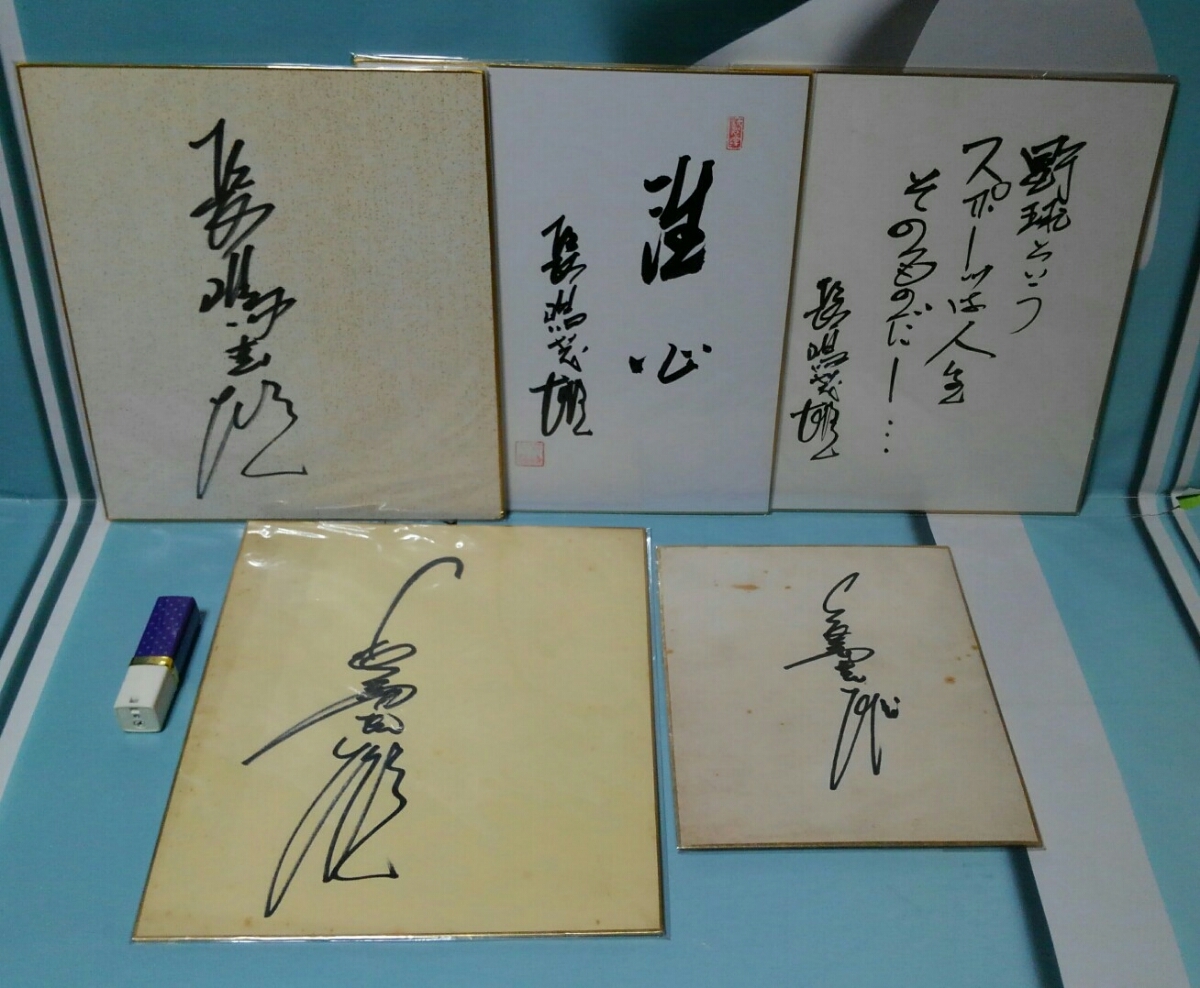 長嶋茂雄
洗心
長嶋茂雄
野球という
スポーツは人生
そのものだー…
長嶋茂雄
長嶋茂雄
長嶋茂雄